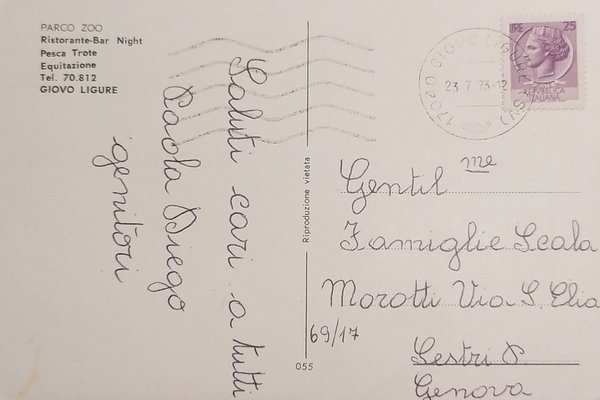 PARCO ZOO
Ristorante-Bar Night
Pesca Trote
Equitazione
Tel. 70.812
GIOVO LIGURE
Saluti cari a tutti
Paola Diego
genitori
Riproduzione vietata
055
17040 GIOVO LIGURE (SV)
23.7.73-12
LIRE 25
REPUBBLICA
ITALIANA
Gentil me
Famiglie Scala
Morotti Via S. Elia
69/17
Sestri P.
Genova